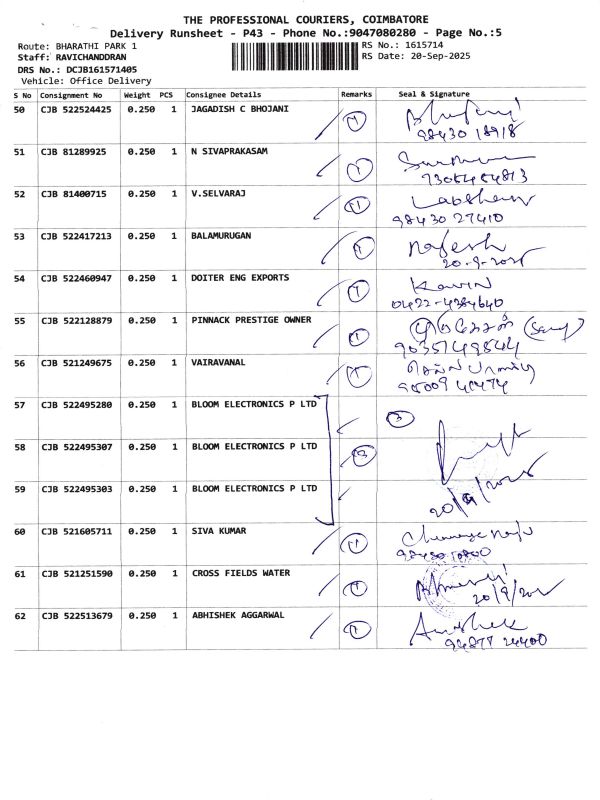 THE PROFESSIONAL COURIERS, COIMBATORE
Delivery Runsheet - P43 - Phone No.:9047080280 - Page No.:5
Route: BHARATHI PARK 1
RS No.: 1615714
Staff: RAVICHANDDRAN
RS Date: 20-Sep-2025
DRS No.: DCJB161571405
Vehicle: Office Delivery
S No Consignment No Weight PCS Consignee Details Remarks Seal & Signature
50 CJB 522524425 0.250 1 JAGADISH C BHOJANI 1
98430 18918
51 CJB 81289925 0.250 1 N SIVAPRAKASAM 1
7305454813
52 CJB 81400715 0.250 1 V.SELVARAJ 1
98430 27410
53 CJB 522417213 0.250 1 BALAMURUGAN 1 Rajesh
20-9-2025
54 CJB 522460947 0.250 1 DOITER ENG EXPORTS 1 Kavin
0422-4384640
55 CJB 522128879 0.250 1 PINNACK PRESTIGE OWNER 1
9035749844
56 CJB 521249675 0.250 1 VAIRAVANAL 1
57 CJB 522495280 0.250 1 BLOOM ELECTRONICS P LTD 3
58 CJB 522495307 0.250 1 BLOOM ELECTRONICS P LTD 3
59 CJB 522495303 0.250 1 BLOOM ELECTRONICS P LTD
20/9/2025
60 CJB 521605711 0.250 1 SIVA KUMAR 1
61 CJB 521251590 0.250 1 CROSS FIELDS WATER 1
20/9/2025
62 CJB 522513679 0.250 1 ABHISHEK AGGARWAL 1
94877 24400